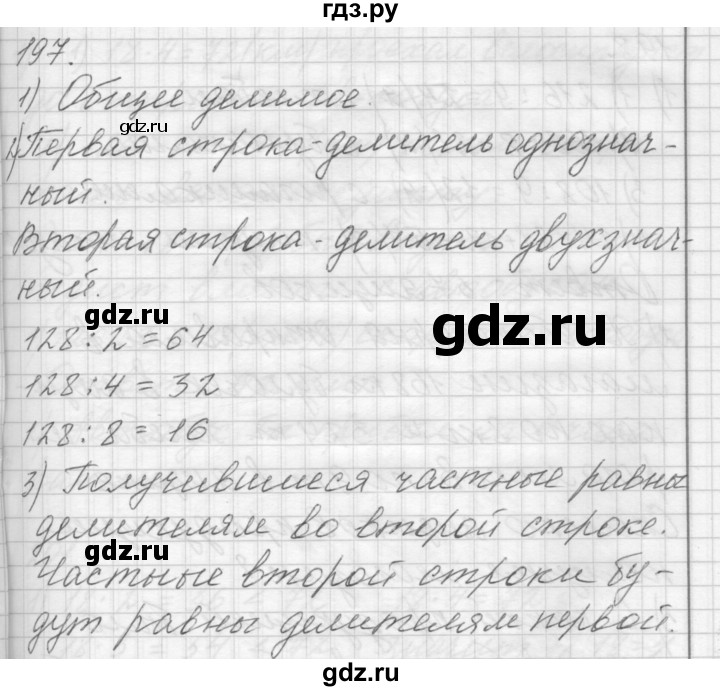 гдз.ру
197.
1) Общее делимое.
gdz.ru
2) Первая строка-делитель однознач-
ный.
Вторая строка - делитель двухзнач-
ный.
gdz.ru
gdz.ru
128:2=64
128:4=32
128:8=16
3) Получившиеся частные равны
делителям во второй строке.
gdz.ru
Частные второй строки бу-
дут равны делителям первой.
gdz.ru